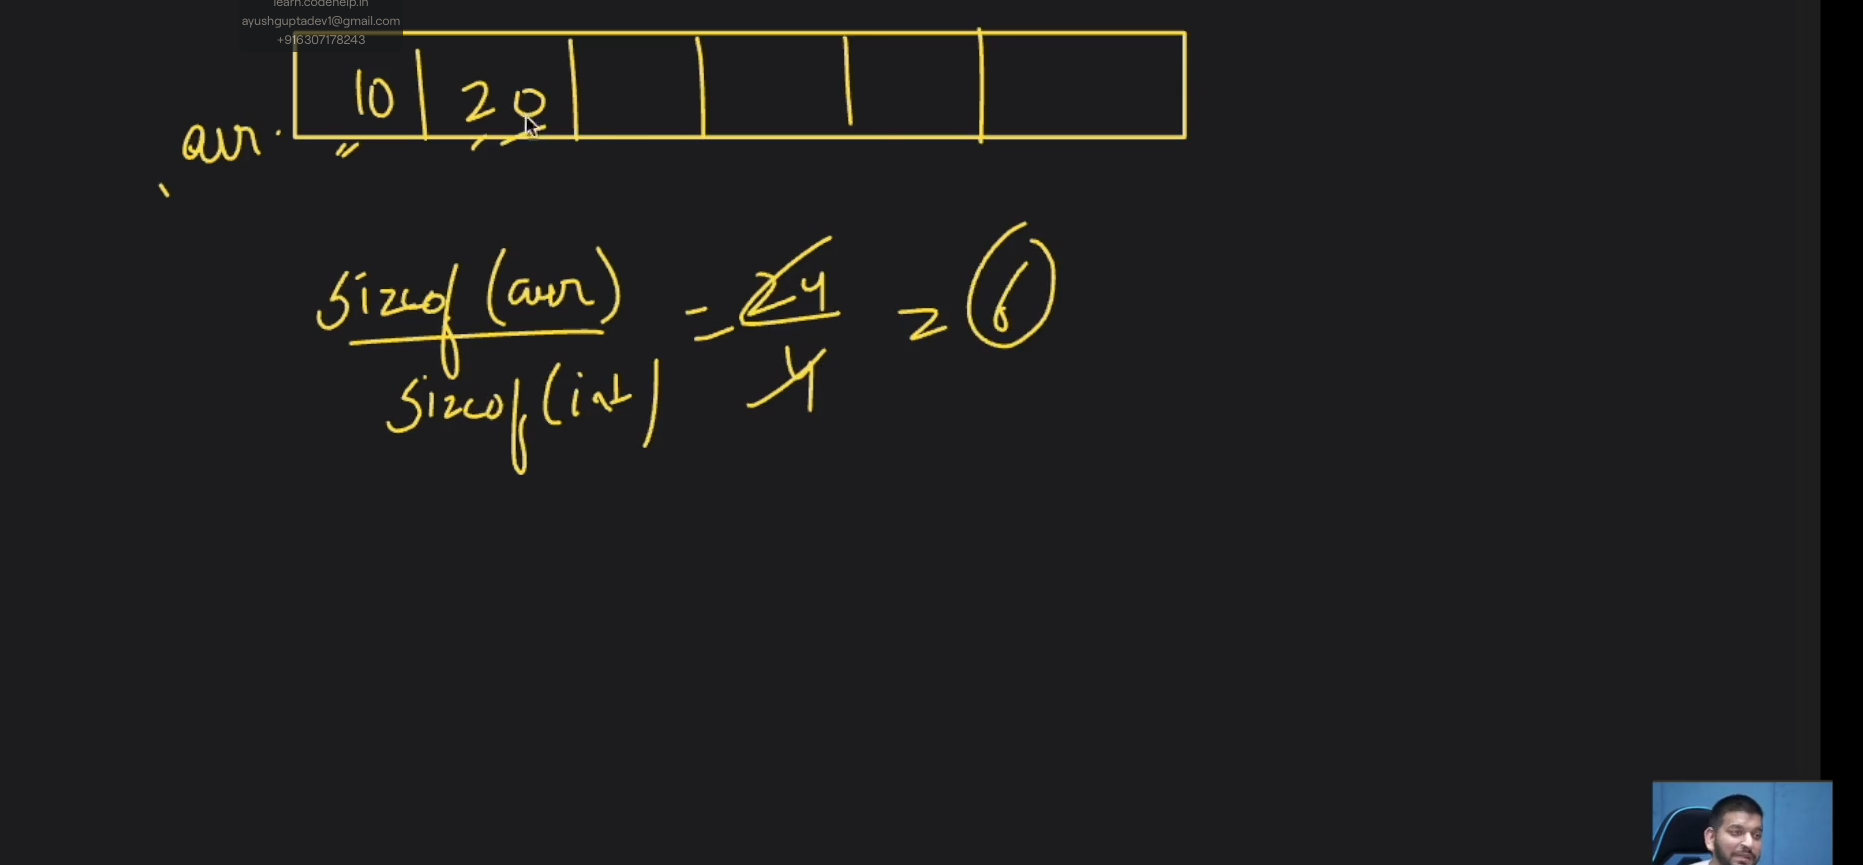 learn.codehelp.in
ayushguptadev1@gmail.com
+916307178243
10 20
arr
sizeof (arr) = 24 = 6
sizeof (int) 4